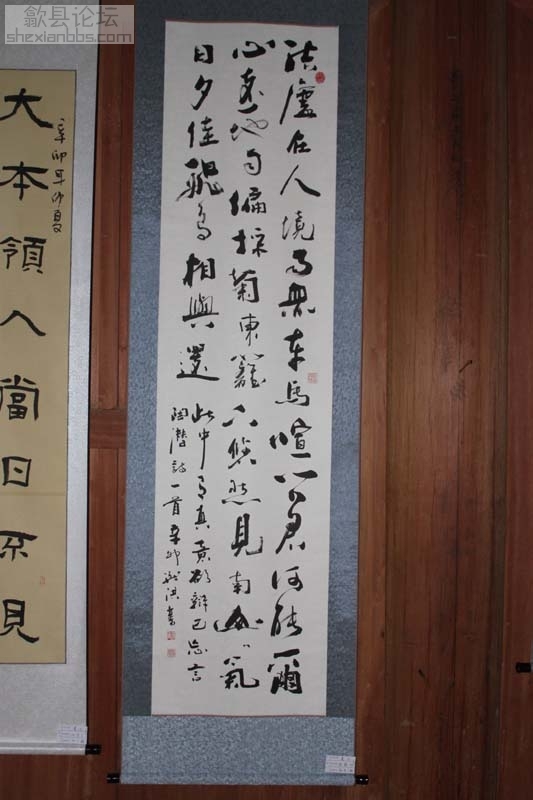 歙县论坛
shexianbbs.com
結廬在人境而無車馬喧問君何能爾
心遠地自偏採菊東籬下悠然見南山〻氣
日夕佳飛鳥相與還
此中有真意欲辯已忘言
陶潛詩一首辛卯洪書
大本領人當日不見
辛卯年仲夏